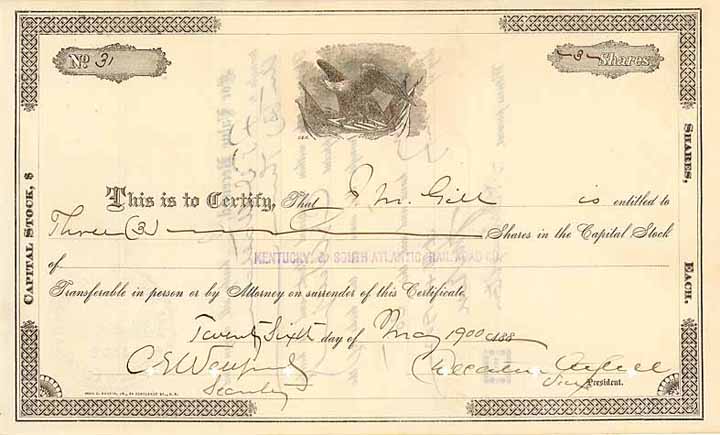 No 31
-3- Shares
CAPITAL STOCK, $
SHARES,
EACH,
This is to Certify, That J. M. Gill is entitled to
Three (3) Shares in the Capital Stock
of KENTUCKY & SOUTH ATLANTIC RAILROAD CO.
Transferable in person or by Attorney on surrender of this Certificate
Twenty Sixth day of May 1900 188
Secretary
Vice President.